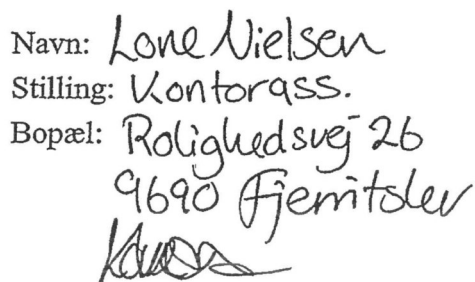 Navn: Lone Nielsen
Stilling: Kontorass.
Bopæl: Rolighedsvej 26
9690 Fjerritslev